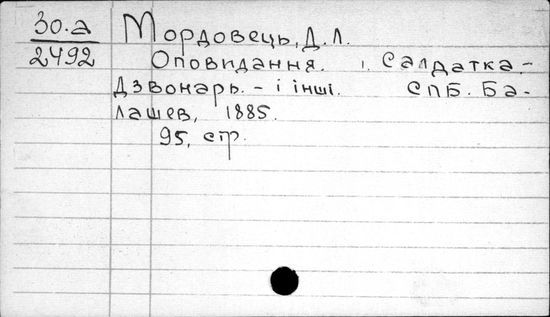 30.а
2492
Мордовець, Д. Л.
Оповидання. 1. Салдатка.-
Дзвонарь. - і інші. СПБ. Ба-
лашев, 1885.
95, стр.